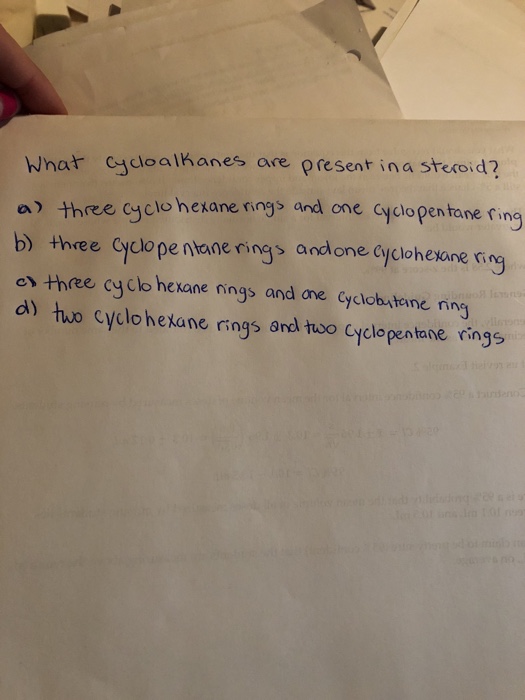 What cycloalkanes are present in a steroid?
a) three cyclohexane rings and one cyclopentane ring
b) three cyclopentane rings and one cyclohexane ring
c) three cyclohexane rings and one cyclobutane ring
d) two cyclohexane rings and two cyclopentane rings